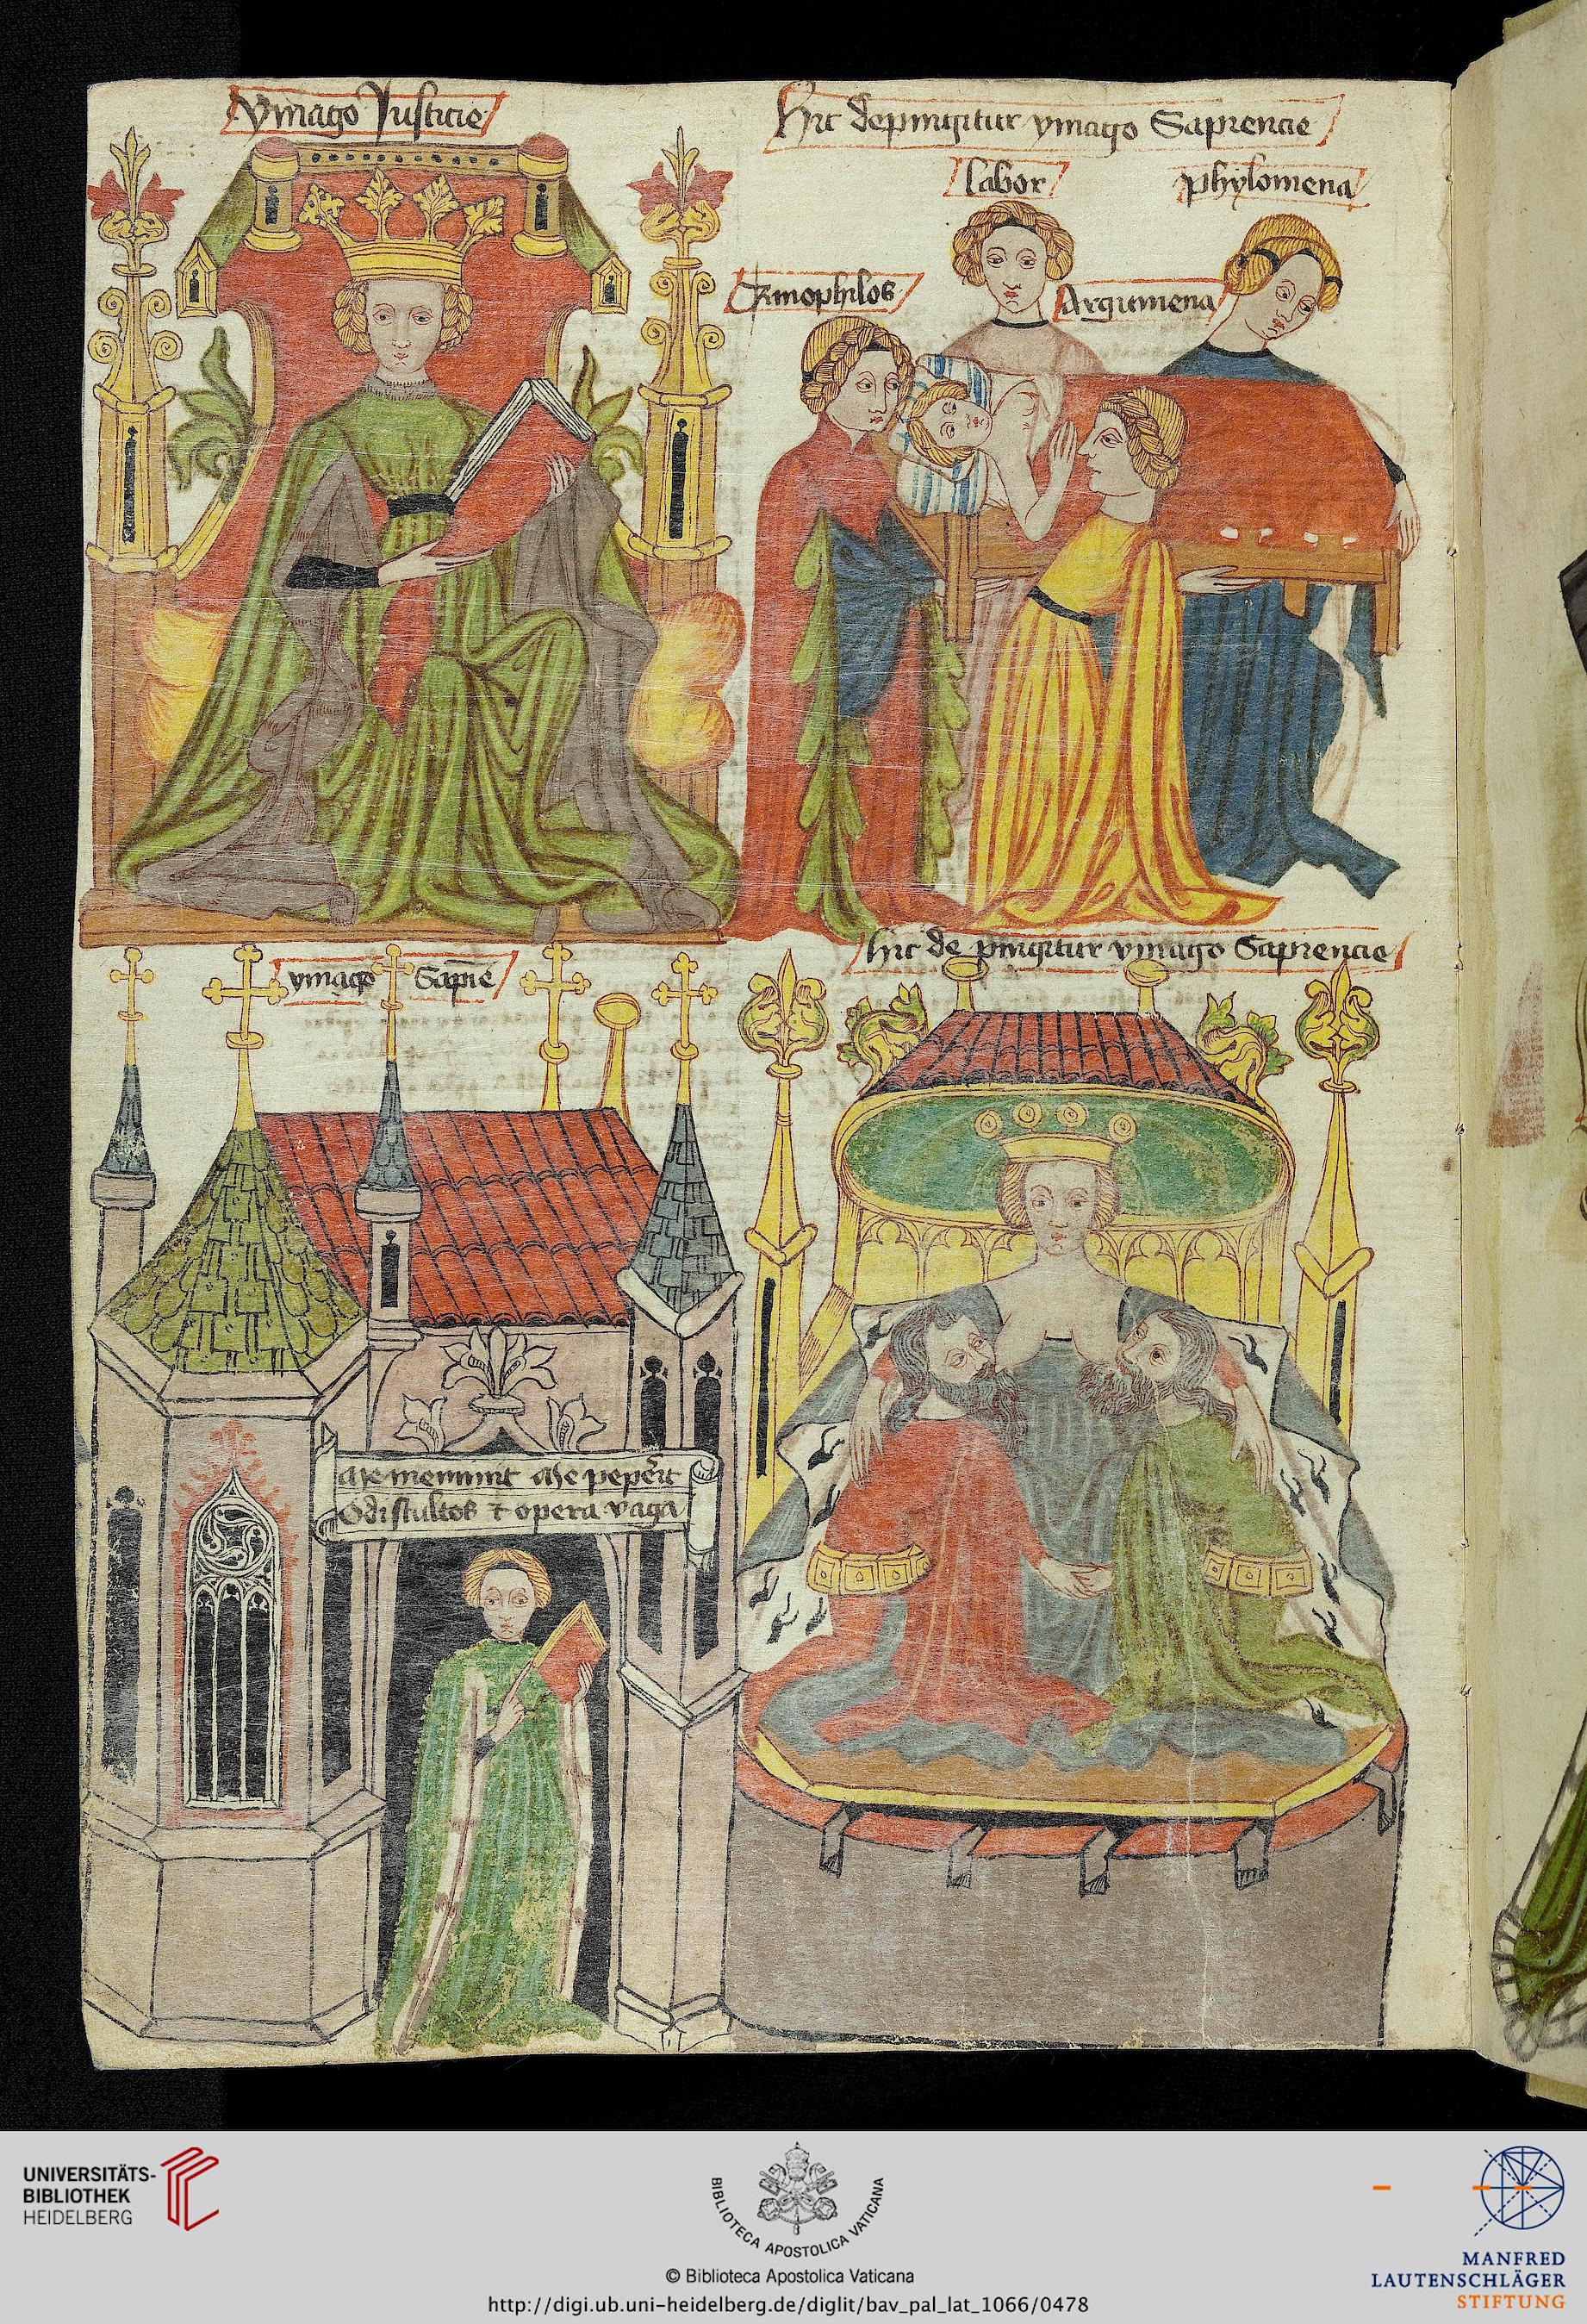 Ymago Justicie
Hic depingitur ymago Sapiencie
labor
phylomena
Argumena
ymago Sapie
Hic depingitur ymago Sapiencie
Me memunit Me peperit
Odi stultos ⁊ opera vaga
UNIVERSITÄTS-
BIBLIOTHEK
HEIDELBERG
BIBLIOTECA APOSTOLICA VATICANA
© Biblioteca Apostolica Vaticana
http://digi.ub.uni-heidelberg.de/diglit/bav_pal_lat_1066/0478
MANFRED
LAUTENSCHLÄGER
STIFTUNG